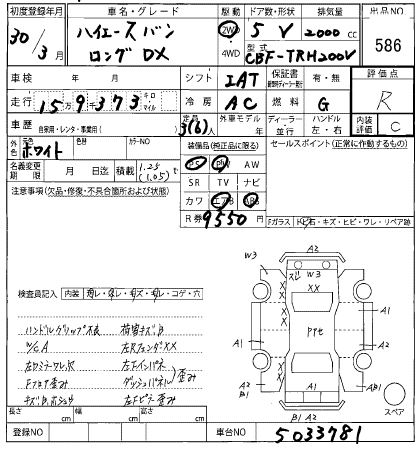 初度登録年月 車名・グレード 駆動 ドア数・形状 排気量 出品NO
30/3月 ハイエース バン 2WD 5 V 2000cc 586
ロング DX 4WD 型式 CBF-TRH200V
車検 年 月 シフト IAT 保証書 有・無 評価点
走行 15万9千373 キロ マイル 冷房 AC 燃料 G R
車歴 自家用・レンタ・事業用( ) 定員 3(6)人 外車モデル 年 ディーラー・並行 ハンドル 左・右 内装評価 C
外色 元色 ホワイト 色替 カラーNO 装備品(純正品に限る) セールスポイント(正常に作動するもの)
名義変更期限 月 日迄 積載 1.25 (1.05) t PS PW AW
注意事項(欠品・修復・不具合箇所および状態) SR TV ナビ
カワ エアB ABS
R券 9550 円 Fガラス 飛石・キズ・ヒビ・ワレ・リペア跡
A2
W3 ズレ W3
XX
A1 PPE A1
A2 B1 AB1
B1 A2 スペア
検査員記入 内装 汚レ・スレ・キズ・コゲ・穴
ハンドルグリップ欠 荷室キズB
W/C A 左RフェンダXX
左Rミラーワレ 左Fインパネ
Fフロア歪み ダッシュパネル 歪み
キズB小シュウ 左Fピラー歪み
長さ cm 幅 cm 高さ cm
登録NO 車台NO 5033781